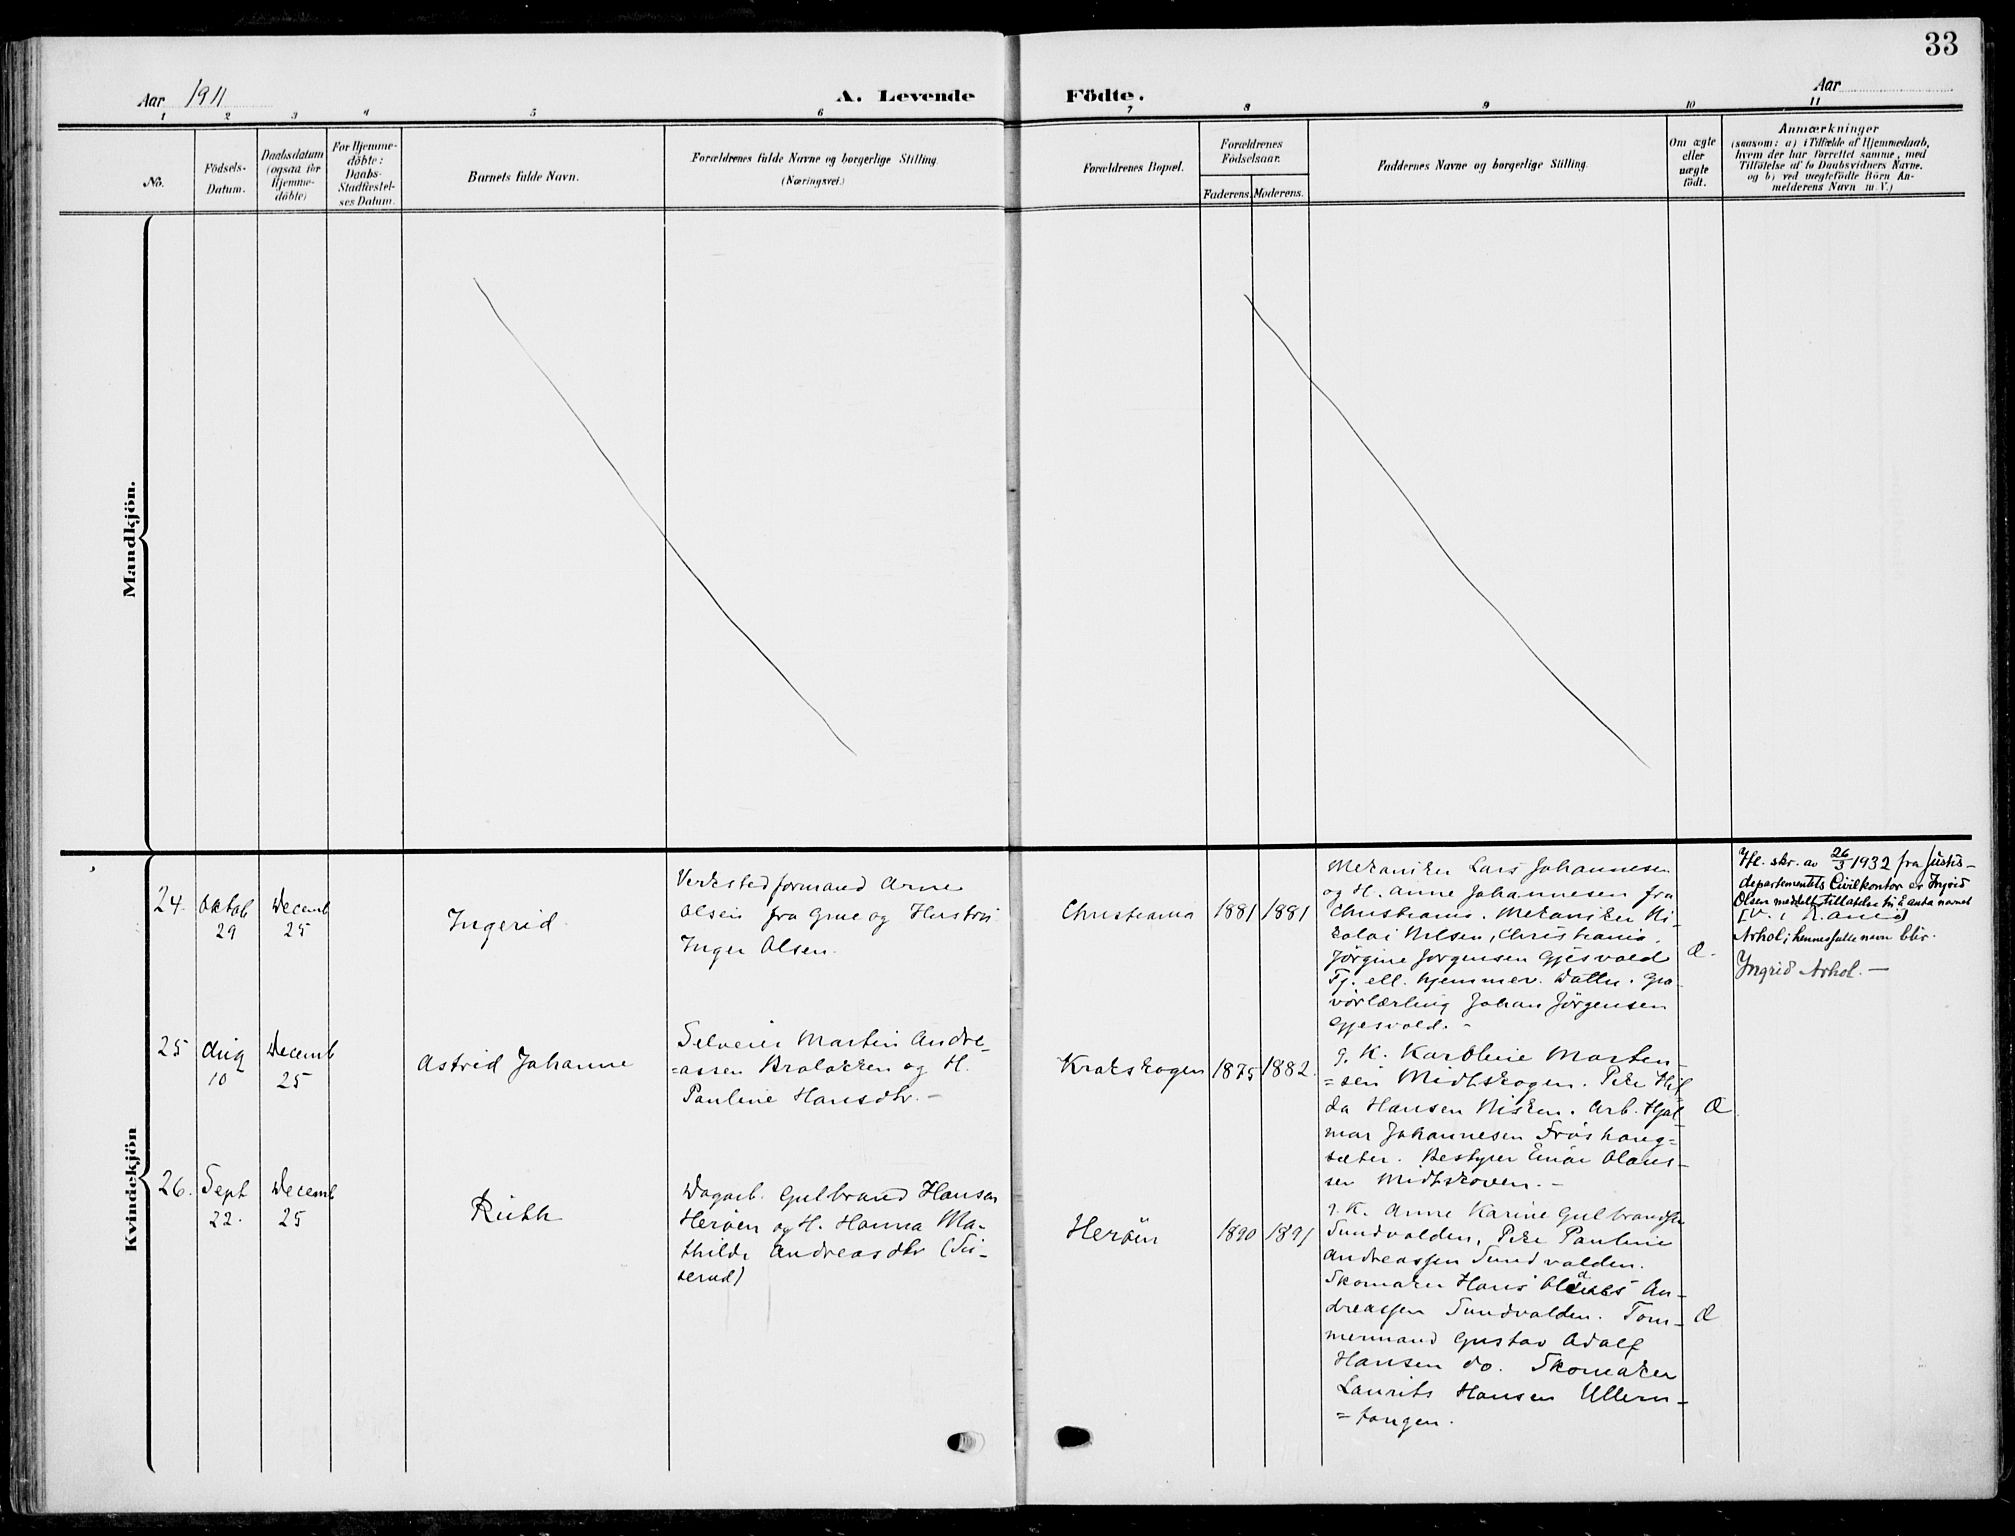 33
Aar 1911
A. Levende Födte.
Aar
1 2 3 4 5 6 7 8 9 10 11
No.
Födsels-
Datum.
Daabsdatum
(ogsaa for
Hjemme-
døbte)
For Hjemme-
døbte:
Daabs-
Stadfæstel-
ses Datum.
Barnets fulde Navn.
Forældrenes fulde Navne og borgerlige Stilling.
(Næringsvei.)
Forældrenes Bopæl.
Forældrenes
Födselsaar.
Faderens. Moderens.
Faddernes Navne og borgerlige Stilling.
Om ægte
eller
uægte
födt.
Anmærkninger
(saasom: a) i Tilfælde af Hjemmedaab,
hvem der har forrettet samme, med
Tilföielse af to Daabsvidners Navne.
og b) ved uægtefödte Börn An-
melderens Navn m. V.)
Mandkjön.
Kvindekjön
24.
Oktob
29
Decemb
25
Ingerid
Verkstedformand Arne
Olsen fra Grue og Hustru
Inger Olsen.
Christiania
1881 1881
Mekaniker Lars Johannesen
og H. Anne Johannesen fra
Christiania. Mekaniker Ni-
kolai Nilsen, Christiania.
Jörgine Jörgensen Gjesvold
Tj. ell. hjemmev. Datter. Gra-
vörlærling Johan Jörgensen
Gjesvold. -
Æ.
Hl. skr. av 26/3 1932 fra Justis-
departementets Civilkontor er Ingrid
Olsen meddelt tillatelse til å anta navnet
Arhol; hennes fulle navn blir.
Ingrid Arhol. —
25
Aug
10
Decemb
25
Astrid Johanne
Selveier Martin Andre-
=assen Bralokken og H.
Pauline Hansdtr. -
Krokskogen
1875 1882.
g. K. Karoline Morten-
=sen Midtskogen. Pike Hil-
da Hansen Nisken. Arb. Hjal-
mar Johannesen Fröshaug-
sæter. Bestyrer Einar Olaus-
sen Midtskoven. -
Æ
26.
Sept
22.
Decemb
25
Ruth
Dagarb. Gulbrand Hansen
Heröen og H. Hanna Ma-
thilde Andreasdtr (Tis-
serud)
Heröen
1890 1891
g. K. Anne Karine Gulbrandsen
Sundvolden, Pike Pauline
Andreassen Sundvolden.
Skomaker Hans An-
dreassen Sundvolden. Töm-
mermand Gustav Adolf
Hansen do. Skomaker
Laurits Hansen Ullern-
=tangen.
Æ